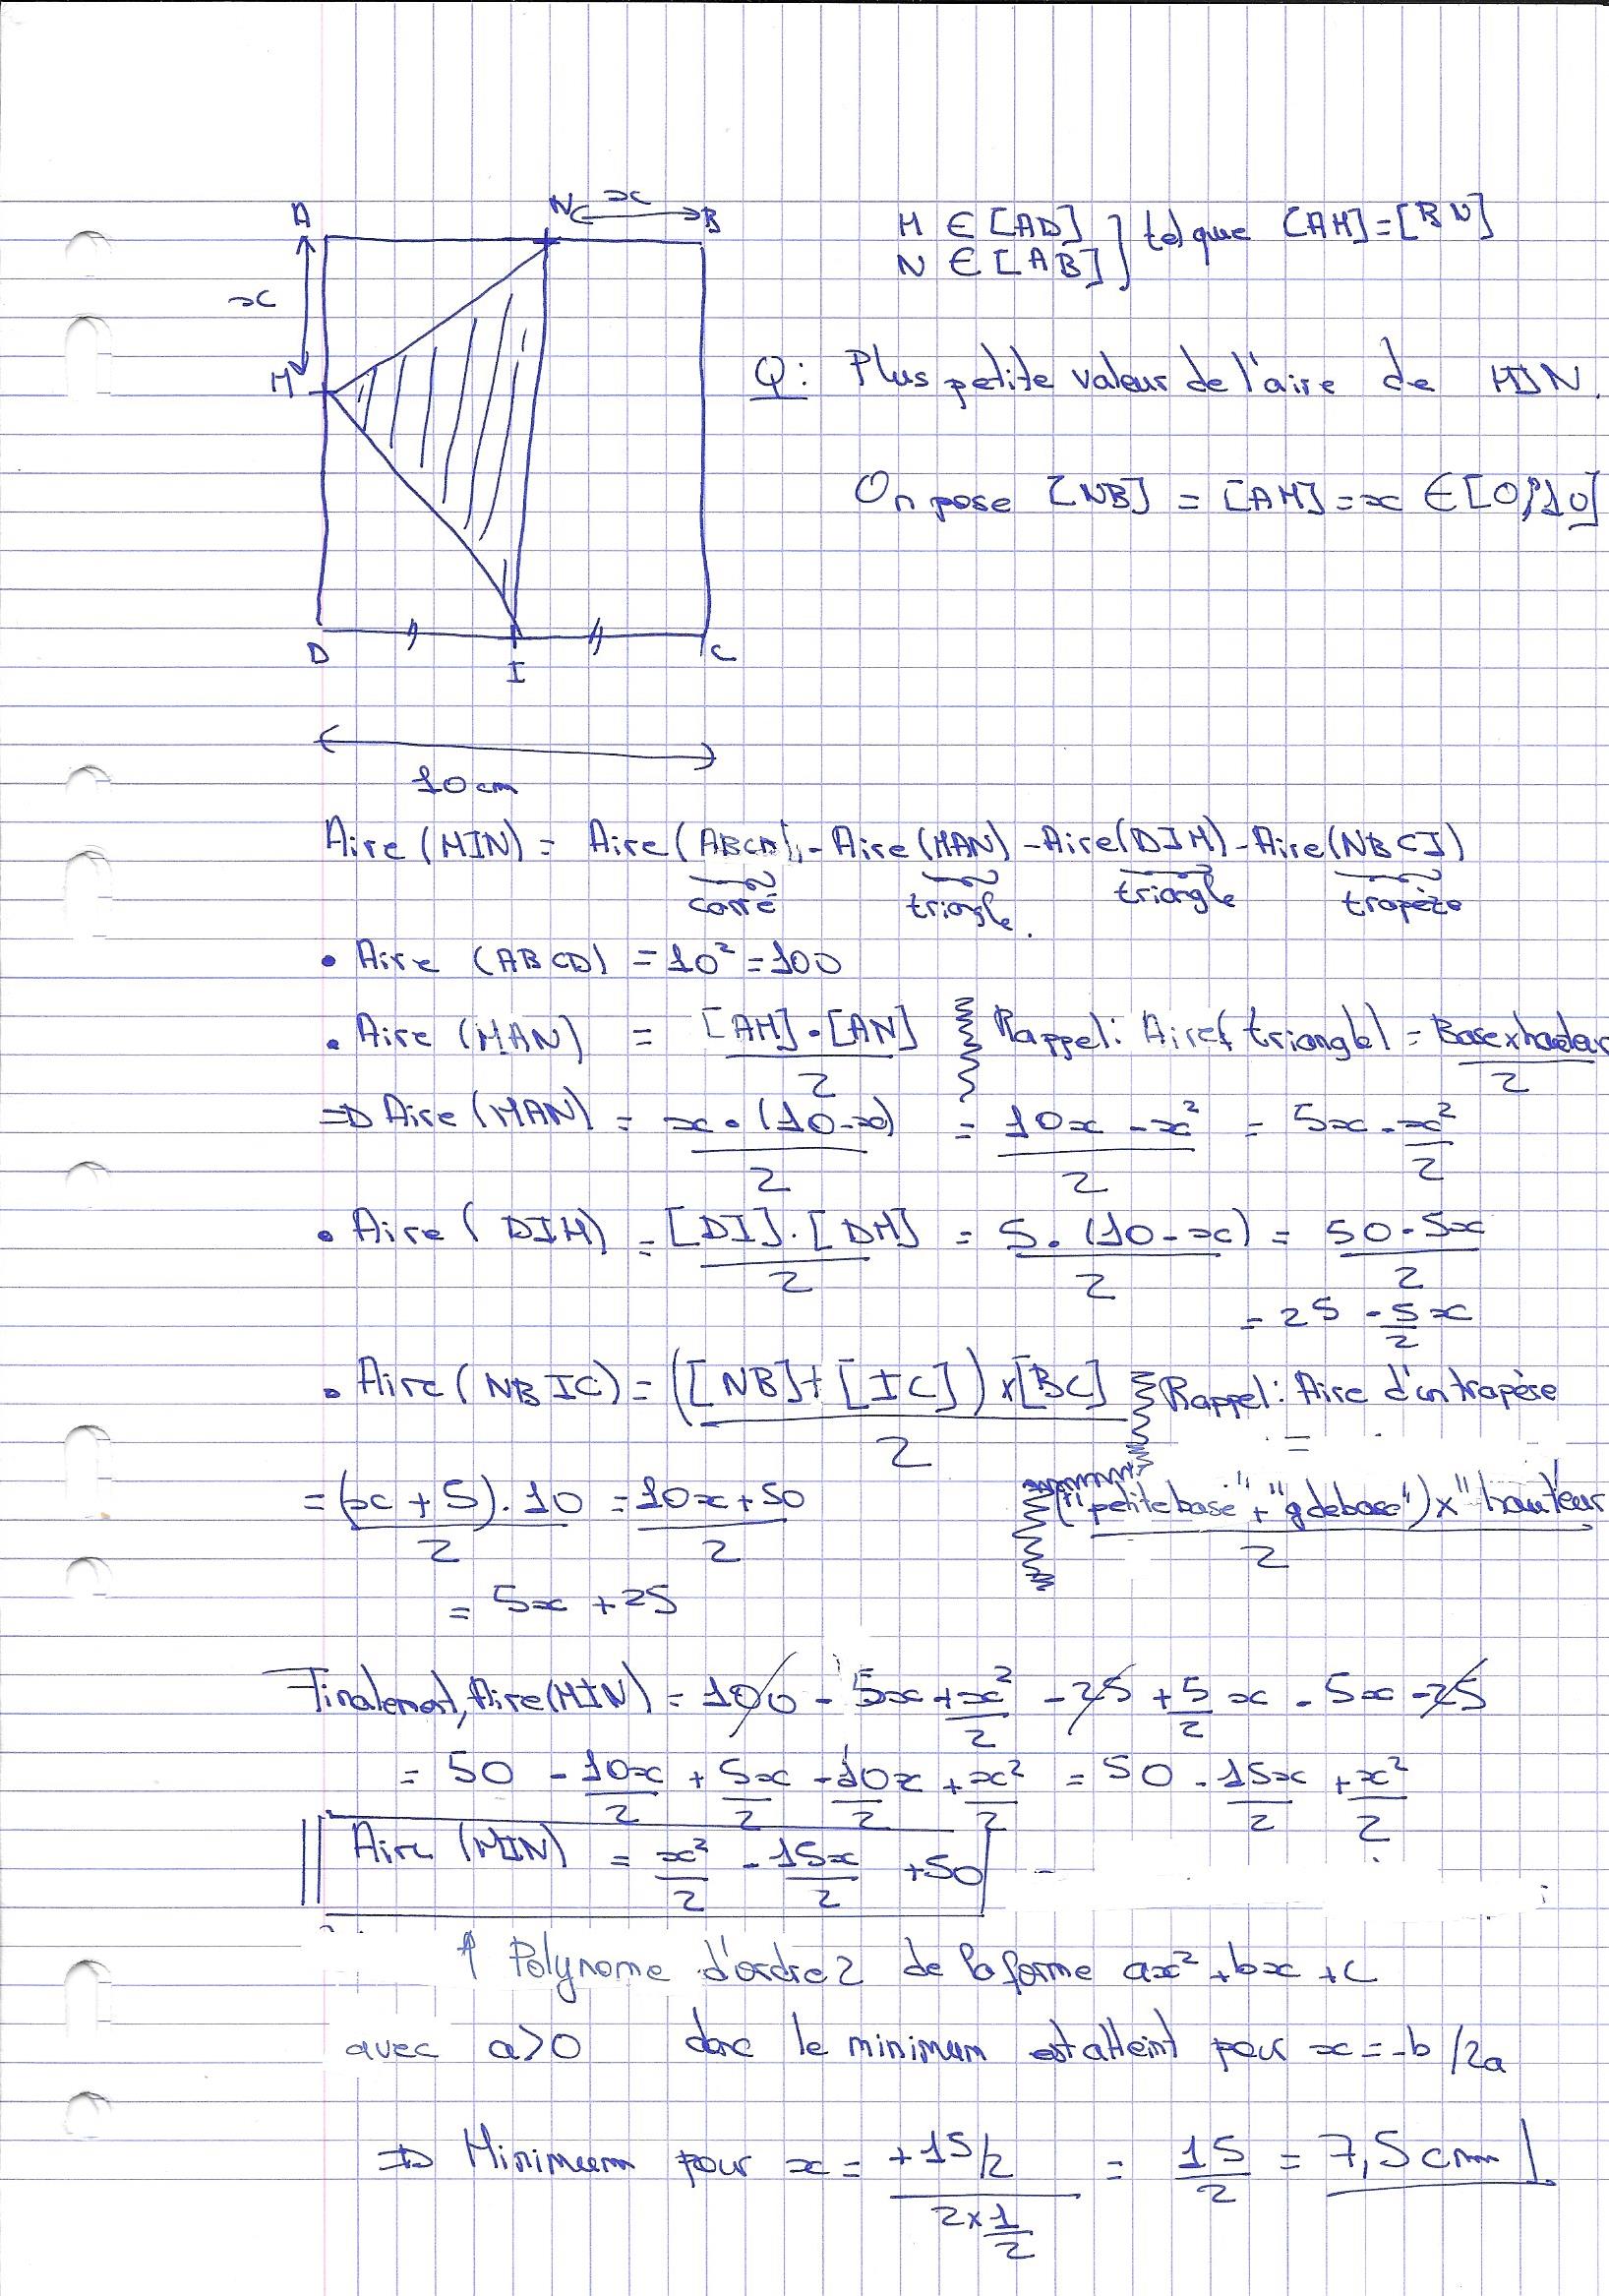 A N x B
x
M
D I C
10cm
M ∈ [AD]
N ∈ [AB] } tel que [AM] = [BN]
Q: Plus petite valeur de l'aire de MIN.
On pose [NB] = [AM] = x ∈ [0;10]
Aire (MIN) = Aire (ABCD) - Aire (MAN) - Aire (DIM) - Aire (NBCI)
carré triangle. triangle trapèze
• Aire (ABCD) = 10² = 100
• Aire (MAN) = [AM]•[AN]/2 Rappel: Aire(triangle) = Base x hauteur/2
=> Aire (MAN) = x•(10-x)/2 = 10x - x²/2 = 5x - x²/2
• Aire (DIM) = [DI].[DM]/2 = 5.(10-x)/2 = 50-5x/2
= 25 - 5/2 x
• Aire (NBIC) = ([NB]+[IC])x[BC]/2 Rappel: Aire d'un trapèse
=
= (x+5).10/2 = 10x+50/2 ("petite base" + "gde base") x "hauteur/2
= 5x + 25
Finalement, Aire (MIN) = 100 - 5x + x²/2 - 25 + 5/2 x - 5x - 25
= 50 - 10x/2 + 5x/2 - 10x/2 + x²/2 = 50 - 15x/2 + x²/2
Aire (MIN) = x²/2 - 15x/2 + 50
↑ Polynome d'ordre 2 de la forme ax²+bx+c
avec a>0 donc le minimum est atteint pour x = -b/2a
=> Minimum pour x = +15/2 / 2x1/2 = 15/2 = 7,5cm